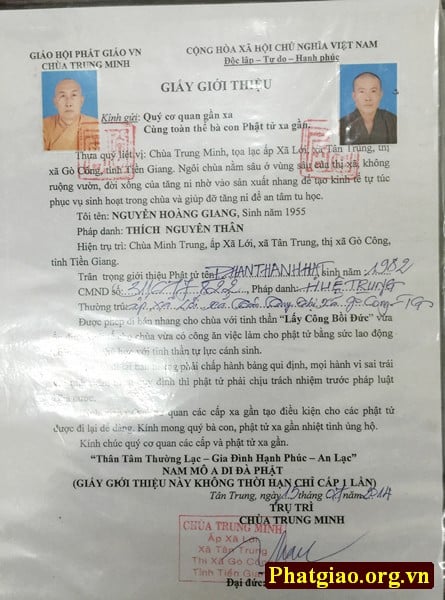 GIÁO HỘI PHÁT GIÁO VN
CHÙA TRUNG MINH
CỘNG HÒA XÃ HỘI CHỦ NGHĨA VIỆT NAM
Độc lập – Tự do – Hạnh phúc
GIẤY GIỚI THIỆU
Kính gửi: Quý cơ quan gần xa
Cùng toàn thể bà con Phật tử xa gần.
Thưa quý liệt vị: Chùa Trung Minh, tọa lạc ấp Xã Lới, xã Tân Trung, thị
xã Gò Công, tỉnh Tiền Giang. Ngôi chùa nằm sâu ở vùng sâu của thị xã, không
ruộng vườn, đời sống của tăng ni nhờ vào sản xuất nhang để tạo kinh tế tự túc
phục vụ sinh hoạt trong chùa và giúp đỡ tăng ni để an tâm tu học.
Tôi tên: NGUYỄN HOÀNG GIANG, Sinh năm 1955
Pháp danh: THÍCH NGUYÊN THÂN
Hiện trụ trì: Chùa Minh Trung, ấp Xã Lới, xã Tân Trung, thị xã Gò Công,
tỉnh Tiền Giang.
Trân trọng giới thiệu Phật tử tên PHAN THANH NHẬT sinh năm 1982
CMND Số: Pháp danh: HUỆ TRUNG
Thường trú: ấp
Được phép đi bán nhang cho chùa với tinh thần "Lấy Công Bồi Đức" vừa
chùa vừa có công ăn việc làm cho phật tử bằng sức lao động
với tinh thần tự lực cánh sinh.
bán nhang phải chấp hành bảng qui định, mọi hành vi sai trái
định thì phật tử phải chịu trách nhiệm trước pháp luật
cơ quan các cấp xa gần tạo điều kiện cho các phật tử
được đi lại dễ dàng. Kính mong quý bà con, phật tử xa gần nhiệt tình ủng hộ.
Kính chúc quý cơ quan các cấp và phật tử xa gần.
"Thân Tâm Thường Lạc – Gia Đình Hạnh Phúc – An Lạc"
NAM MÔ A DI ĐÀ PHẬT
(GIẤY GIỚI THIỆU NÀY KHÔNG THỜI HẠN CHỈ CẤP 1 LẦN)
Tân Trung, ngày 15 tháng năm 2014
TRỤ TRÌ
CHÙA TRUNG MINH
CHÙA TRUNG MINH
Ấp Xã Lới
Xã Tân Trung
Thị Xã Gò Công
Tỉnh Tiền Giang
Đại đức:
Phatgiao.org.vn